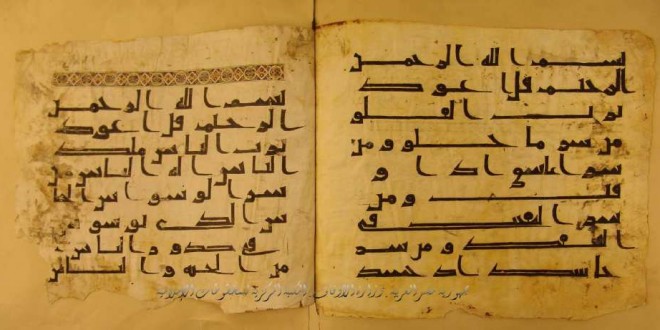 بسم الله الرحمن
الرحيم قل اعوذ
برب الفلق
من شر ما خلق ومن
شر غاسق اذا و
قب ومن
شر النفثت فى
العقد ومن شر
حاسد اذا حسد
بسم الله الرحمن
الرحيم قل اعوذ
برب الناس ملك
الناس اله الناس من
شر الوسواس الخنا
س الذى يوسوس
فى صدور الناس
من الجنة والناس
جمهورية مصر العربية . وزارة الأوقاف . المكتبة المركزية للمخطوطات الإسلامية